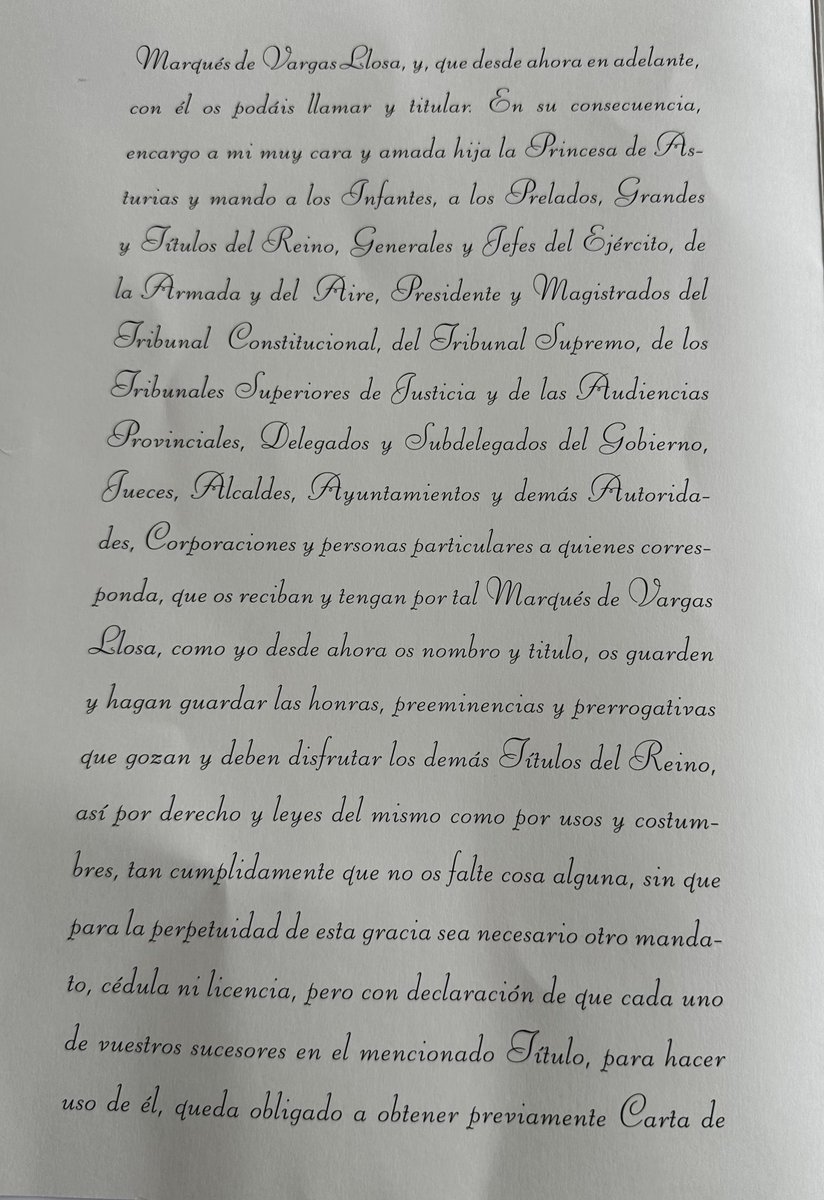 Marqués de Vargas Llosa, y, que desde ahora en adelante,
con él os podáis llamar y titular. En su consecuencia,
encargo a mi muy cara y amada hija la Princesa de As-
turias y mando a los Infantes, a los Prelados, Grandes
y Títulos del Reino, Generales y Jefes del Ejército, de
la Armada y del Aire, Presidente y Magistrados del
Tribunal Constitucional, del Tribunal Supremo, de los
Tribunales Superiores de Justicia y de las Audiencias
Provinciales, Delegados y Subdelegados del Gobierno,
Jueces, Alcaldes, Ayuntamientos y demás Autorida-
des, Corporaciones y personas particulares a quienes corres-
ponda, que os reciban y tengan por tal Marqués de Vargas
Llosa, como yo desde ahora os nombro y titulo, os guarden
y hagan guardar las honras, preeminencias y prerrogativas
que gozan y deben disfrutar los demás Títulos del Reino,
así por derecho y leyes del mismo como por usos y costum-
bres, tan cumplidamente que no os falte cosa alguna, sin que
para la perpetuidad de esta gracia sea necesario otro manda-
to, cédula ni licencia, pero con declaración de que cada uno
de vuestros sucesores en el mencionado Título, para hacer
uso de él, queda obligado a obtener previamente Carta de